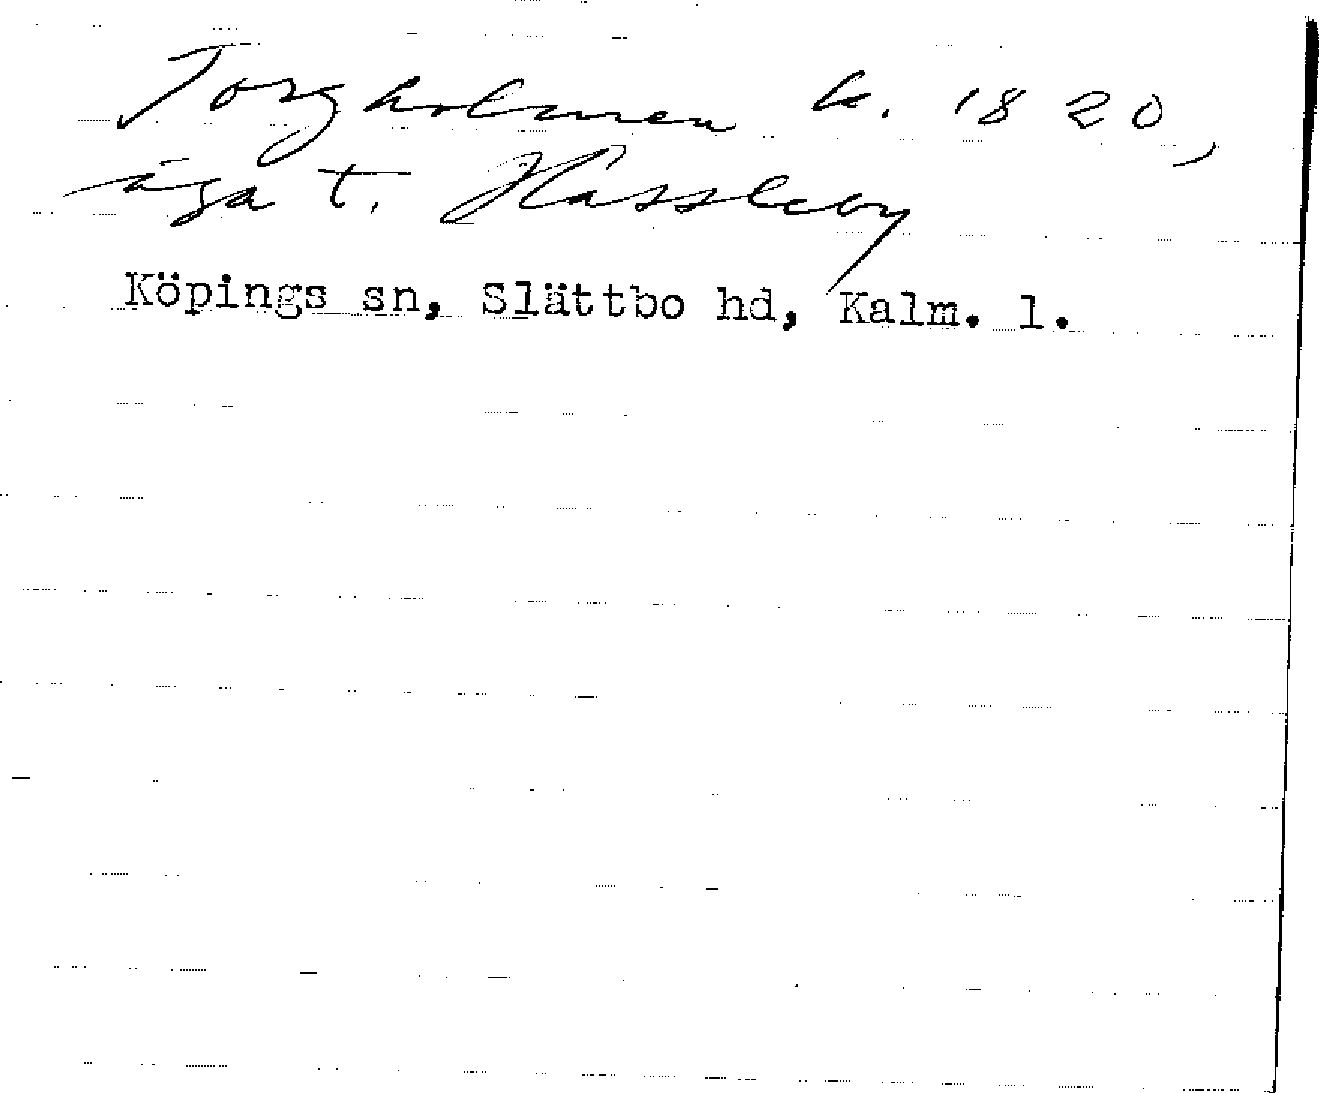 Torgholmen k. 1820,
äga t. Hässleby
Köpings sn, Slättbo hd, Kalm. l.